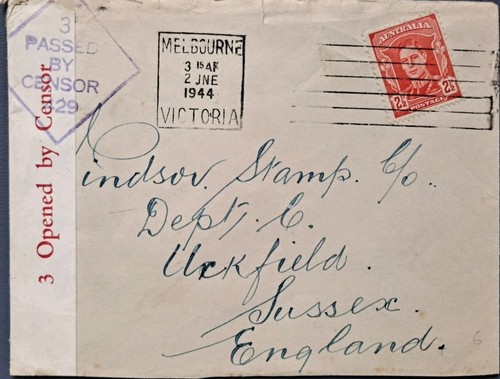 3
PASSED
BY
CENSOR
329
3 Opened by Censor
MELBOURNE
3 15 AM
2 JNE
1944
VICTORIA
AUSTRALIA
2½D
POSTAGE
Windsor. Stamp. C/o.
Dept. C.
Uckfield.
Sussex.
England.
6